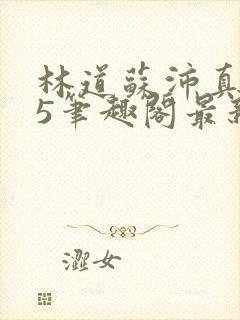 林道蘇沛真
5筆趣閣最新
澀女